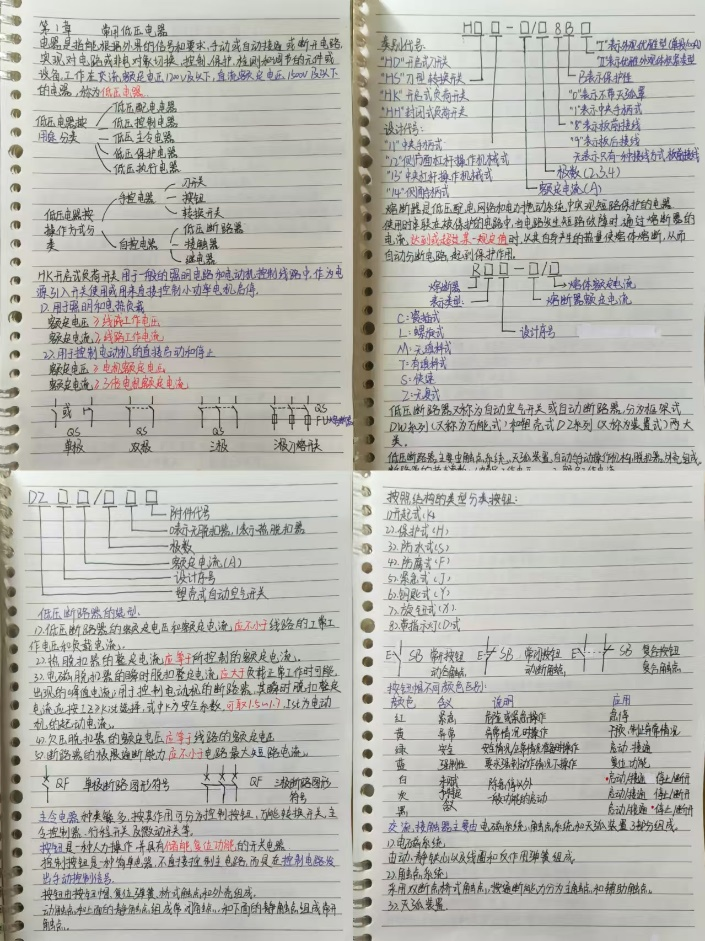 第1章 常用低压电器
电器是指能根据外界的信号和要求,手动或自动接通或断开电路,
实现对电路或非电对象切换、控制、保护、检测和调节的元件或
设备,工作在交流额定电压1200V及以下,直流额定电压1500V及以下
的电器,称为低压电器
低压电器按
用途分类
低压配电电器
低压控制电器
低压主令电器
低压保护电器
低压执行电器
低压电器按
操作方式分
类
手控电器
刀开关
按钮
转换开关
自控电器
低压断路器
接触器
继电器
HK开启式负荷开关用于一般的照明电路和电动机控制线路中,作为电
源引入开关使用或用来直接控制小功率电机启停.
1).用于照明和电热负载
额定电压≥线路工作电压
额定电流≥线路工作电流
2).用于控制电动机的直接启动和停止
额定电压≥电机额定电压
额定电流≥3倍电机额定电流
或
QS QS QS QS
FU
单极 双极 三极
H□□-□/□8B□
类别代号:
"HD"开启式刀开关
"HS"刀型转换开关
"HK"开启式负荷开关
"HH"封闭式负荷开关
设计代号:
"11"中央手柄式
"12"侧方正面杠杆操作机械式
"13"中央杠杆操作机械式
"14"侧面手柄式
B表示保护性
"0"表示不带灭弧罩
"1"表示中央手柄式
"8"表示板前接线
"9"表示板后接线
极数(2,3,4)
额定电流(A)
熔断器是低压配电网络和电力拖动系统中实现短路保护的电器
使用时串联在被保护的电路中,当电路发生短路故障时,通过熔断器的
电流达到或超过某一规定值时,以其自身产生的热量使熔体熔断,从而
自动分断电路,起到保护作用.
R□□-□/□
熔断器
表示类型:
熔体额定电流
熔断器额定电流
设计序号
C:瓷插式
L:螺旋式
M:无填料式
T:有填料式
S:快速
Z:
低压断路器又称为自动空气开关或自动断路器,分为框架式
DW系列(又称为万能式)和塑壳式DZ系列(又称为装置式)两大
类.
低压断路器主要由触点系统、灭弧装置、自动与手动操作机构、脱扣器、外壳组成.
DZ□□/□□□
附件代号
0表示无脱扣器,1表示热脱扣器
极数
额定电流(A)
设计序号
塑壳式自动空气开关
低压断路器的选型:
1).低压断路器的额定电压和额定电流应不小于线路的正常工
作电压和负载电流.
2).热脱扣器的整定电流应等于所控制的额定电流.
3).电磁脱扣器的瞬时脱扣整定电流应大于负载正常工作时可能
出现的峰值电流;用于控制电动机的断路器,其瞬时脱扣整定
电流应按IZ≥K·Ist选择,式中K为安全系数,可取1.5~1.7,Ist为电动
机的起动电流.
4).欠压脱扣器的额定电压应等于线路的额定电压
5).断路器的极限通断能力应不小于电路最大短路电流
QF 单极断路图形符号
QF 三极断路图形
符号
主令电器种类繁多,按其作用可分为控制按钮、万能转换开关、主
令控制器、行程开关及微动开关等.
按钮是一种人力操作,并具有储能复位功能的开关电器
控制按钮是一种简单电器,不直接控制主电路,而是在控制电路发
出手动控制信号.
按钮由按钮帽、复位弹簧、桥式触点和外壳组成.
动触点和上面的静触点组成常闭触点,和下面的静触点组成常开
触点.
按照结构的类型分类按钮:
1).开起式(K)
2).保护式(H)
3).防水式(S)
4).防腐式(F)
5).紧急式(J)
6).钥匙式(Y)
7).旋钮式(X)
8).带指示灯(D)式
E SB 常开按钮
动合触点
E SB 常闭按钮
动断触点
E SB 复合按钮
复合触点
按钮帽不同颜色区别:
颜色 含义 说明 应用
红 紧急 急停
黄 异常 异常情况时操作
绿 安全 启动/接通
蓝 强制性 要求强制动作情况下操作 复位功能
白 未赋 除急停以外 启动/接通 停止/断开
灰 予特定 一般功能的启动 启动/接通 停止/断开
黑 含义 启动/接通 停止/断开
交流接触器主要由电磁系统、触点系统和灭弧装置3部分组成.
1).电磁系统
由动、静铁心以及线圈和反作用弹簧组成
2).触点系统
采用双断点桥式触点,按通断能力分为主触点和辅助触点.
3).灭弧装置